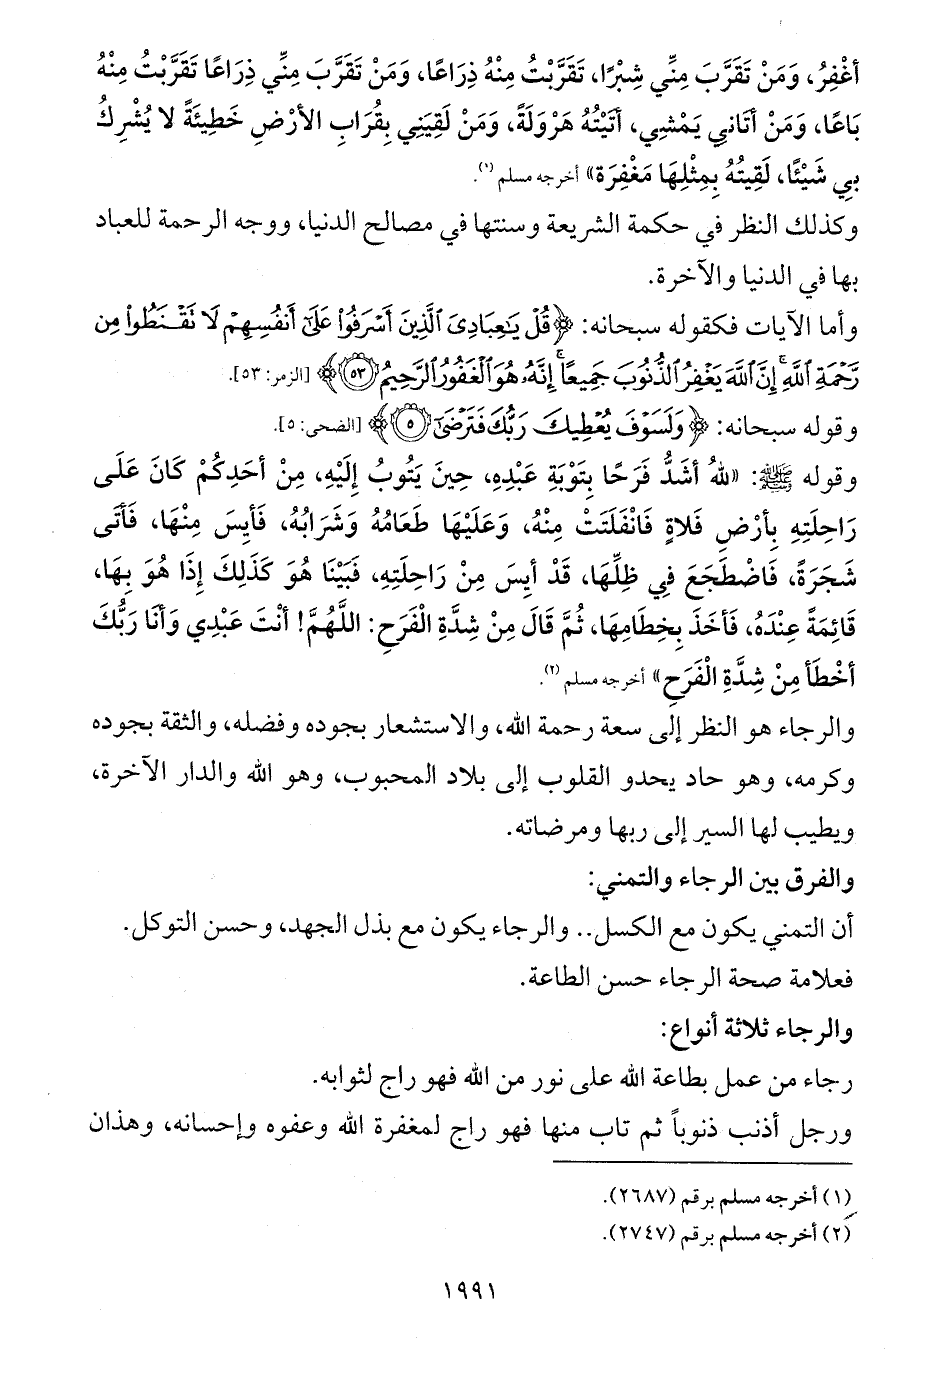 أَغْفِرُ، وَمَنْ تَقَرَّبَ مِنِّي شِبْرًا، تَقَرَّبْتُ مِنْهُ ذِرَاعًا، وَمَنْ تَقَرَّبَ مِنِّي ذِرَاعًا تَقَرَّبْتُ مِنْهُ
بَاعًا، وَمَنْ أَتَانِي يَمْشِي، أَتَيْتُهُ هَرْوَلَةً، وَمَنْ لَقِيَنِي بِقُرَابِ الأَرْضِ خَطِيئَةً لا يُشْرِكُ
بِي شَيْئًا، لَقِيتُهُ بِمِثْلِهَا مَغْفِرَةً» أخرجه مسلم (١).
وكذلك النظر في حكمة الشريعة وسنتها في مصالح الدنيا، ووجه الرحمة للعباد
بها في الدنيا والآخرة.
وأما الآيات فكقوله سبحانه: ﴿قُلْ يَٰعِبَادِىَ ٱلَّذِينَ أَسْرَفُوا۟ عَلَىٰٓ أَنفُسِهِمْ لَا تَقْنَطُوا۟ مِن
رَّحْمَةِ ٱللَّهِ ۚ إِنَّ ٱللَّهَ يَغْفِرُ ٱلذُّنُوبَ جَمِيعًا ۚ إِنَّهُۥ هُوَ ٱلْغَفُورُ ٱلرَّحِيمُ ٥٣﴾ [الزمر: ٥٣].
وقوله سبحانه: ﴿وَلَسَوْفَ يُعْطِيكَ رَبُّكَ فَتَرْضَىٰٓ ٥﴾ [الضحى: ٥].
وقوله ﷺ: «للهُ أَشَدُّ فَرَحًا بِتَوْبَةِ عَبْدِهِ، حِينَ يَتُوبُ إِلَيْهِ، مِنْ أَحَدِكُمْ كَانَ عَلَى
رَاحِلَتِهِ بِأَرْضِ فَلاةٍ فَانْفَلَتَتْ مِنْهُ، وَعَلَيْهَا طَعَامُهُ وَشَرَابُهُ، فَأَيِسَ مِنْهَا، فَأَتَى
شَجَرَةً، فَاضْطَجَعَ فِي ظِلِّهَا، قَدْ أَيِسَ مِنْ رَاحِلَتِهِ، فَبَيْنَا هُوَ كَذَلِكَ إِذَا هُوَ بِهَا،
قَائِمَةً عِنْدَهُ، فَأَخَذَ بِخِطَامِهَا، ثُمَّ قَالَ مِنْ شِدَّةِ الْفَرَحِ: اللَّهُمَّ! أَنْتَ عَبْدِي وَأَنَا رَبُّكَ
أَخْطَأَ مِنْ شِدَّةِ الْفَرَحِ» أخرجه مسلم (٢).
والرجاء هو النظر إلى سعة رحمة الله، والاستشعار بجوده وفضله، والثقة بجوده
وكرمه، وهو حاد يحدو القلوب إلى بلاد المحبوب، وهو الله والدار الآخرة،
ويطيب لها السير إلى ربها ومرضاته.
والفرق بين الرجاء والتمني:
أن التمني يكون مع الكسل.. والرجاء يكون مع بذل الجهد، وحسن التوكل.
فعلامة صحة الرجاء حسن الطاعة.
والرجاء ثلاثة أنواع:
رجاء من عمل بطاعة الله على نور من الله فهو راج لثوابه.
ورجل أذنب ذنوباً ثم تاب منها فهو راج لمغفرة الله وعفوه وإحسانه، وهذان
(١) أخرجه مسلم برقم (٢٦٨٧).
(٢) أخرجه مسلم برقم (٢٧٤٧).
١٩٩١